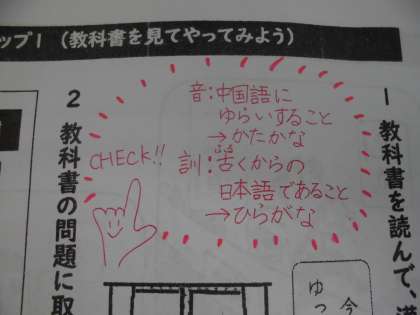 ップ1 (教科書を見てやってみよう)
1 教科書を読んで、
音:中国語に
ゆらいすること
→かたかな
訓:古くからの
ふる
日本語であること
→ひらがな
CHECK!!
2 教科書の問題に取
今
ゆっ